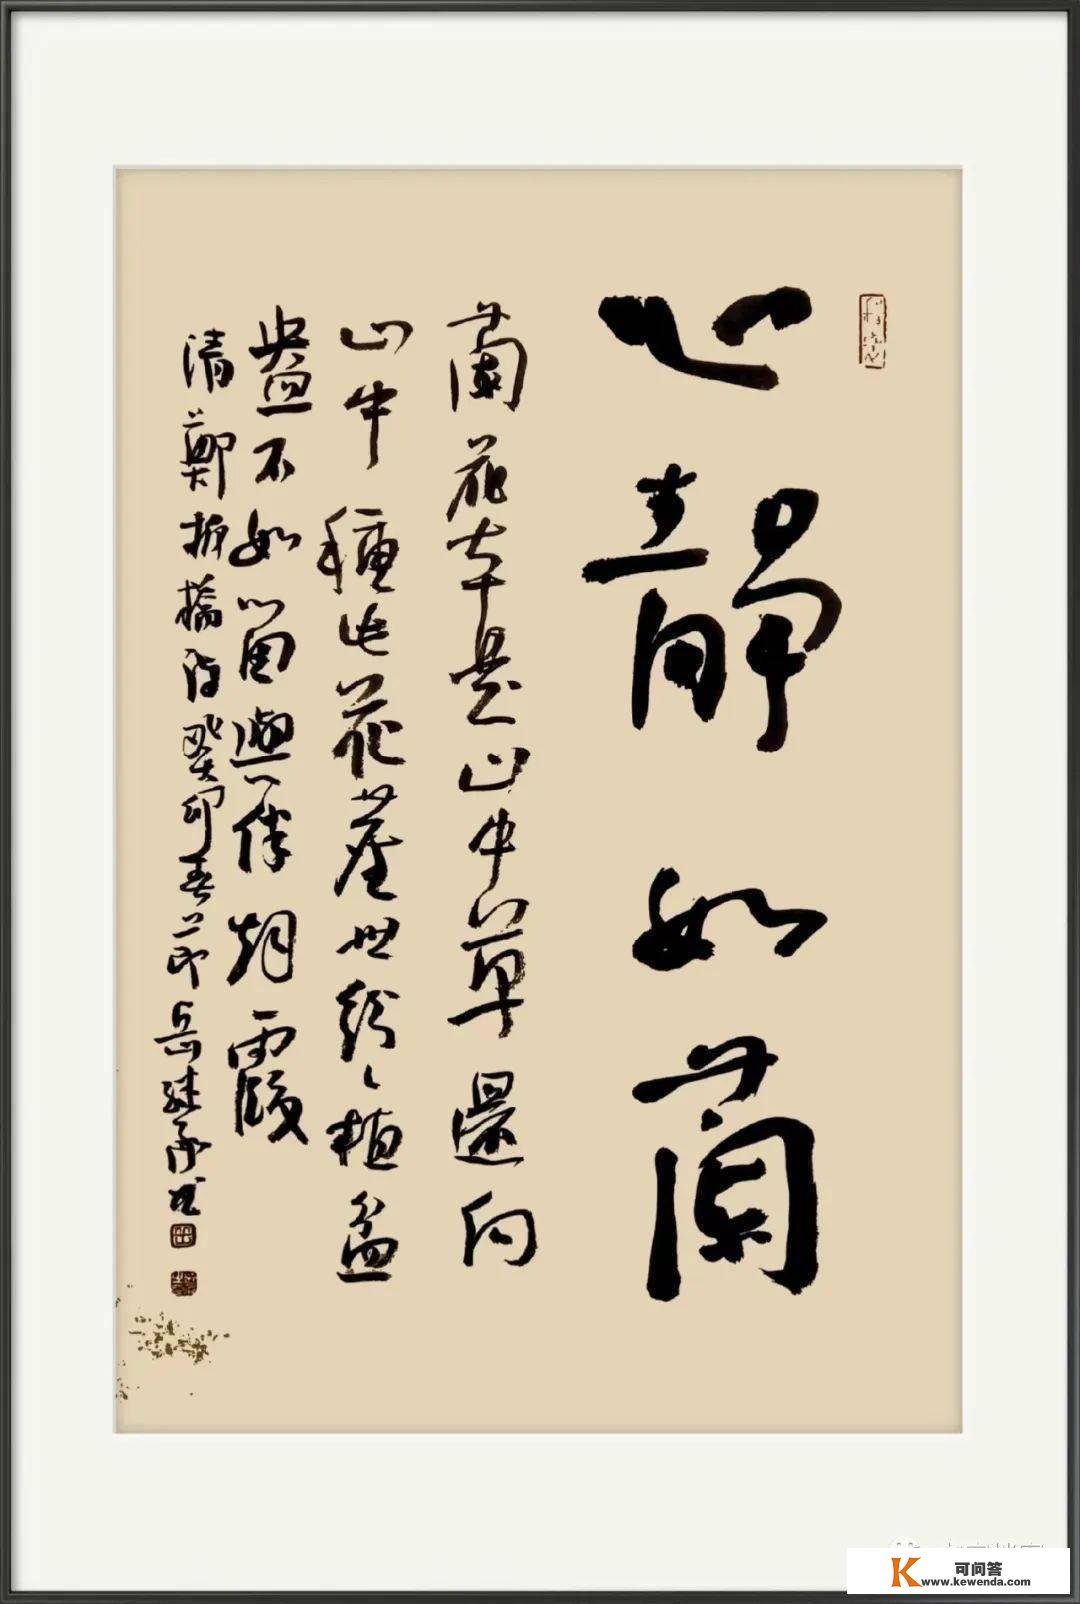 心靜如蘭
蘭花本是山中草還向
山中種此花塵世紛〻植盆
盎不如留與伴烟霞
清鄭板橋詩癸卯春節岳継承书
K 可问答
www.kewenda.com